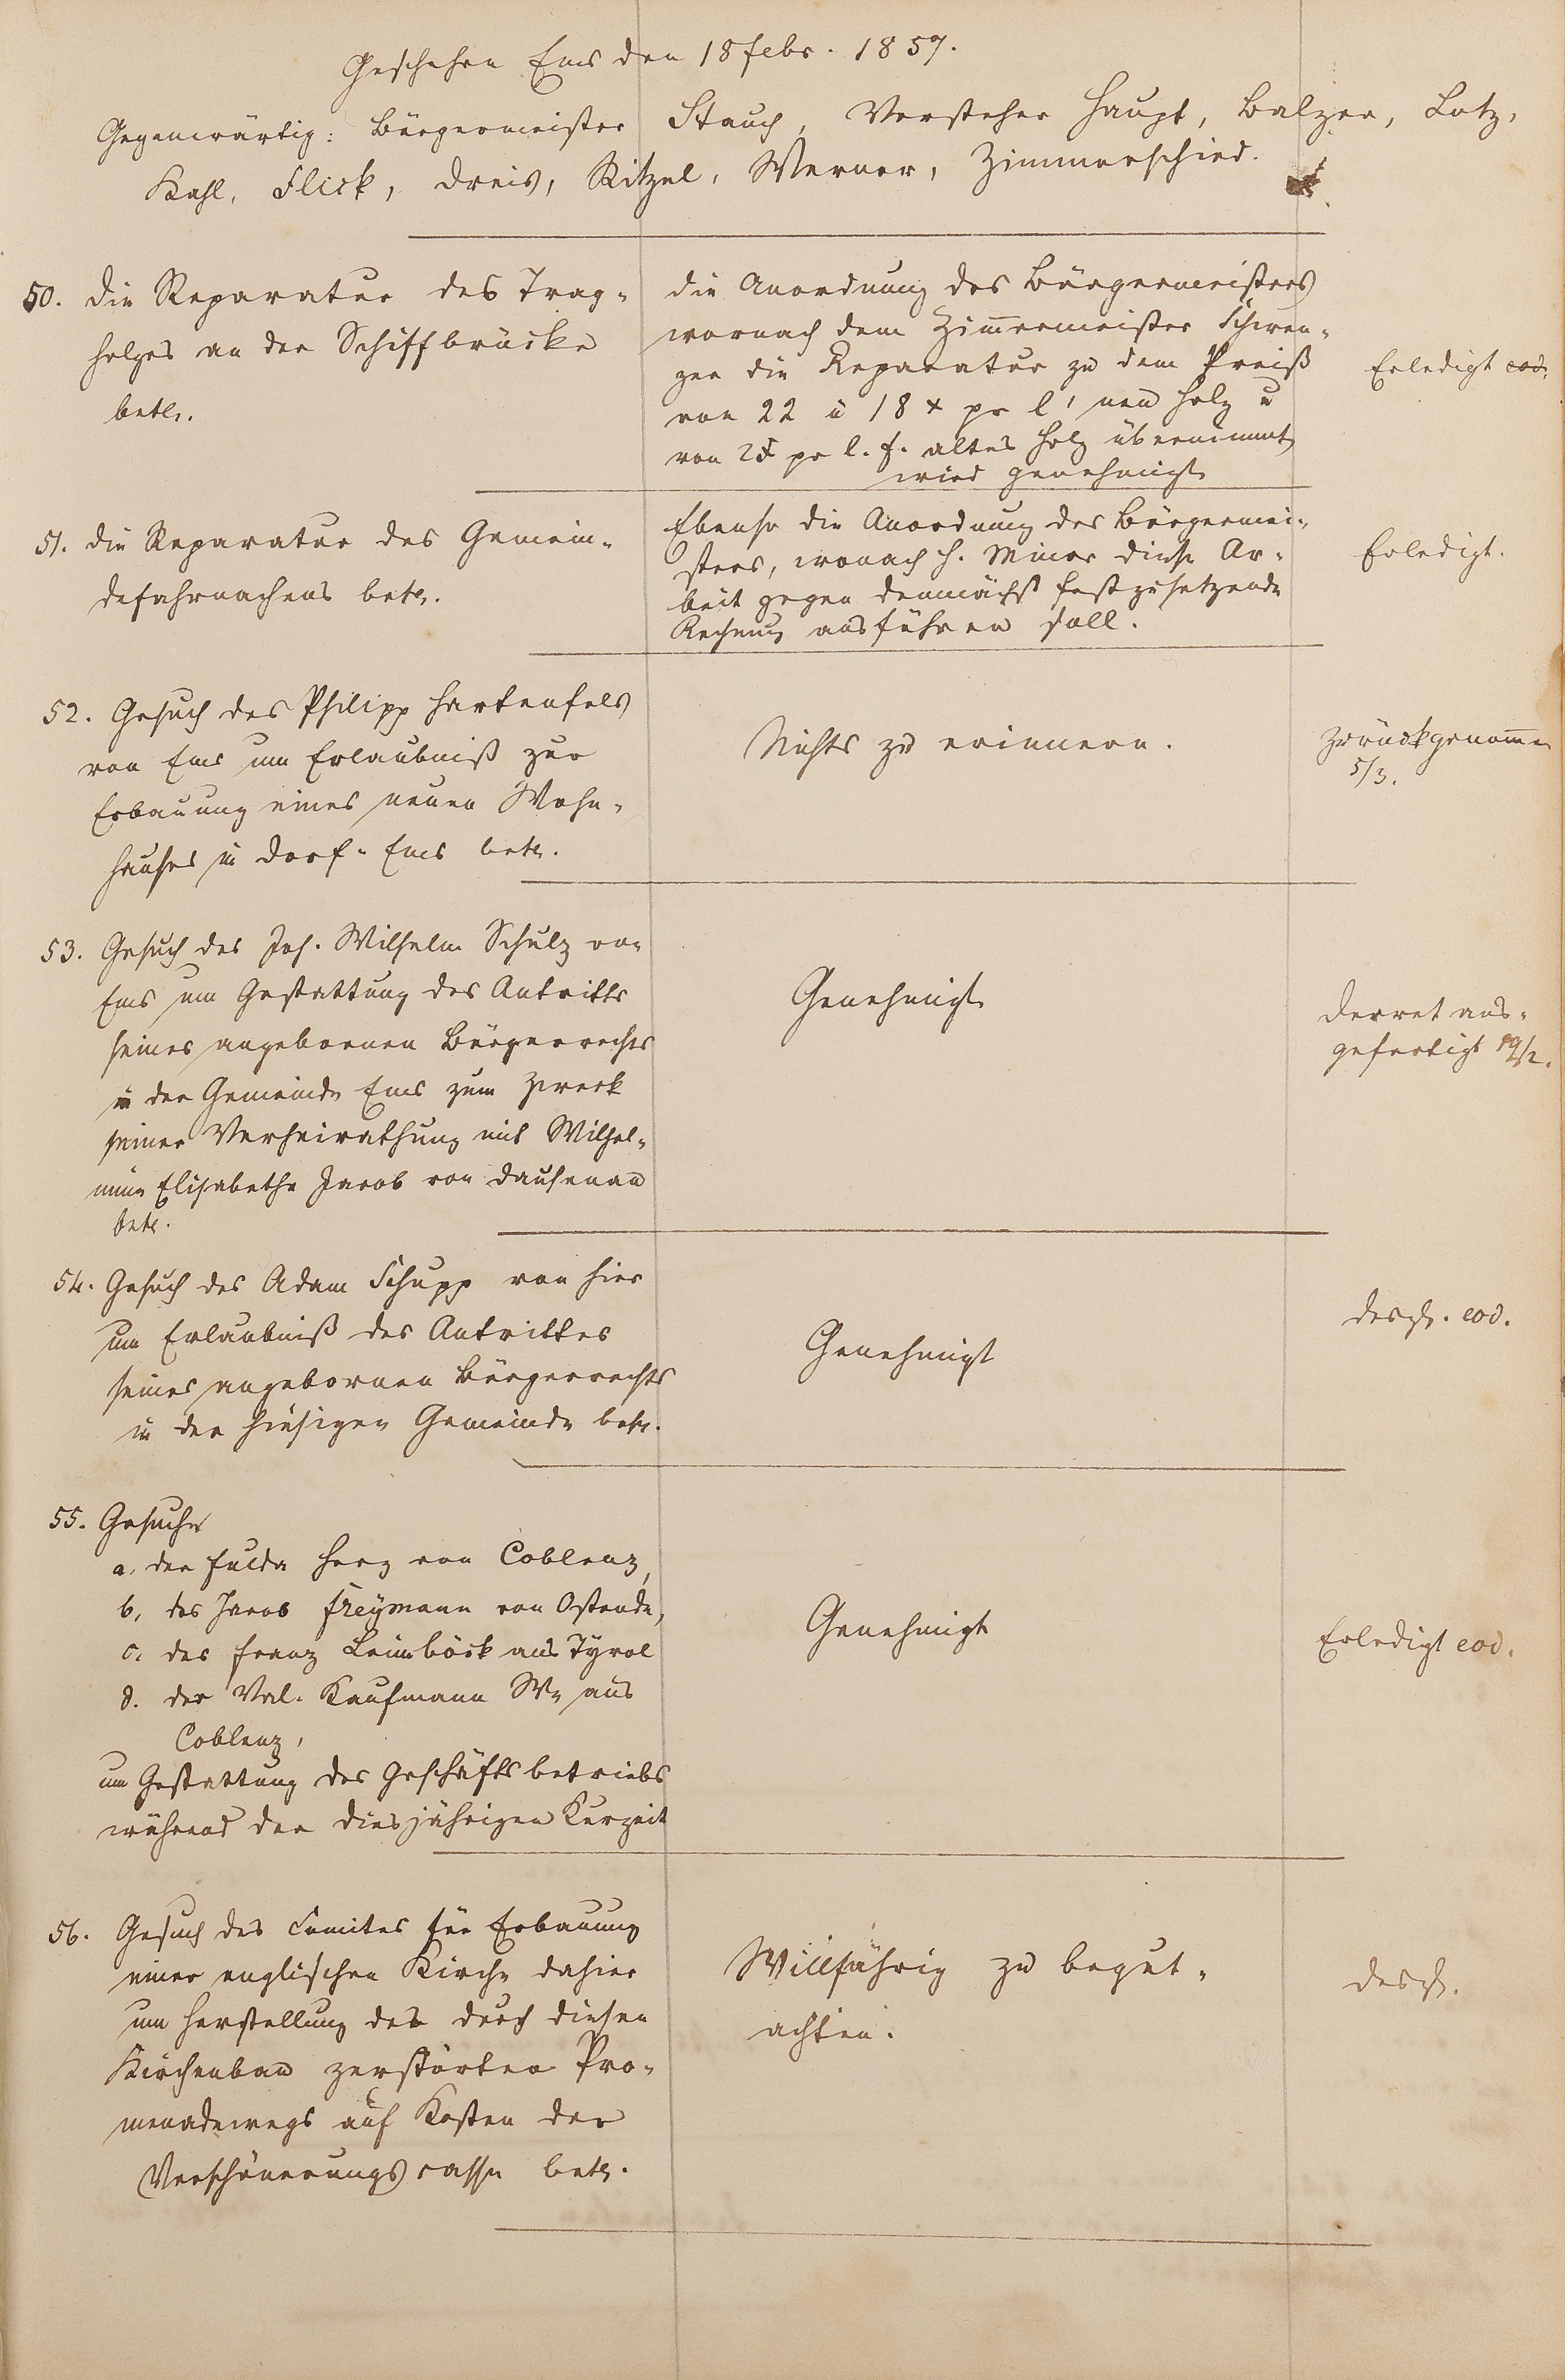 Geschehen Ems den 18 Febr. 1857.
Gegenwärtig: Bürgermeister Stauch, Vorsteher Haupt, Balzer, Lotz,
Kahl, Flick, Dreis, Ritzel, Werner, Zimmerschied.
50. Die Reparatur des Trag-
holzes an der Schiffbrücke
betr.
Die Anordnung des Bürgermeisters
wornach dem Zimmermeister Schwen-
zer die Reparatur zu dem Preiß
von 22 u 18 x pr l' neu Holz u
von 2 x pr l. f. altes Holz übernimmt,
wird genehmigt
Erledigt eod.
51. Die Reparatur des Gemein-
defahrnachens betr.
Ebenso die Anordnung des Bürgermei-
sters, wonach H. Minor diese Ar-
beit gegen demnächst festzusetzende
Rechnung ausführen soll.
Erledigt.
52. Gesuch des Philipp Hartenfels
von Ems um Erlaubniß zur
Erbauung eines neuen Wohn-
hauses in Dorf-Ems betr.
Nichts zu erinnern.
Zurückgenommen
5/3.
53. Gesuch des Joh. Wilhelm Schulz von
Ems um Gestattung des Antritts
seines angebornen Bürgerrechts
in der Gemeinde Ems zum Zweck
seiner Verheirathung mit Wilhel-
mine Elisabethe Jacob von Dausenau
betr.
Genehmigt
Decret aus-
gefertigt 19/2.
54. Gesuch des Adam Schupp von hier
um Erlaubniß des Antrittes
seines angebornen Bürgerrechts
in der hiesigen Gemeinde betr.
Genehmigt
desgl. eod.
55. Gesuche
a. der Fulda Herz von Coblenz,
b. des Jacob Freymann von Ostende,
c. des Franz Leimböck aus Tyrol
d. der Val. Kaufmann We aus
Coblenz,
um Gestattung des Geschäftsbetriebs
während der diesjährigen Kurzeit
Genehmigt
Erledigt eod.
56. Gesuch des Comites für Erbauung
einer englischen Kirche dahier
um Herstellung des durch diesen
Kirchenbau zerstörten Pro-
menadewegs auf Kosten der
Verschönerungscasse betr.
Willfährig zu begut-
achten.
desgl.